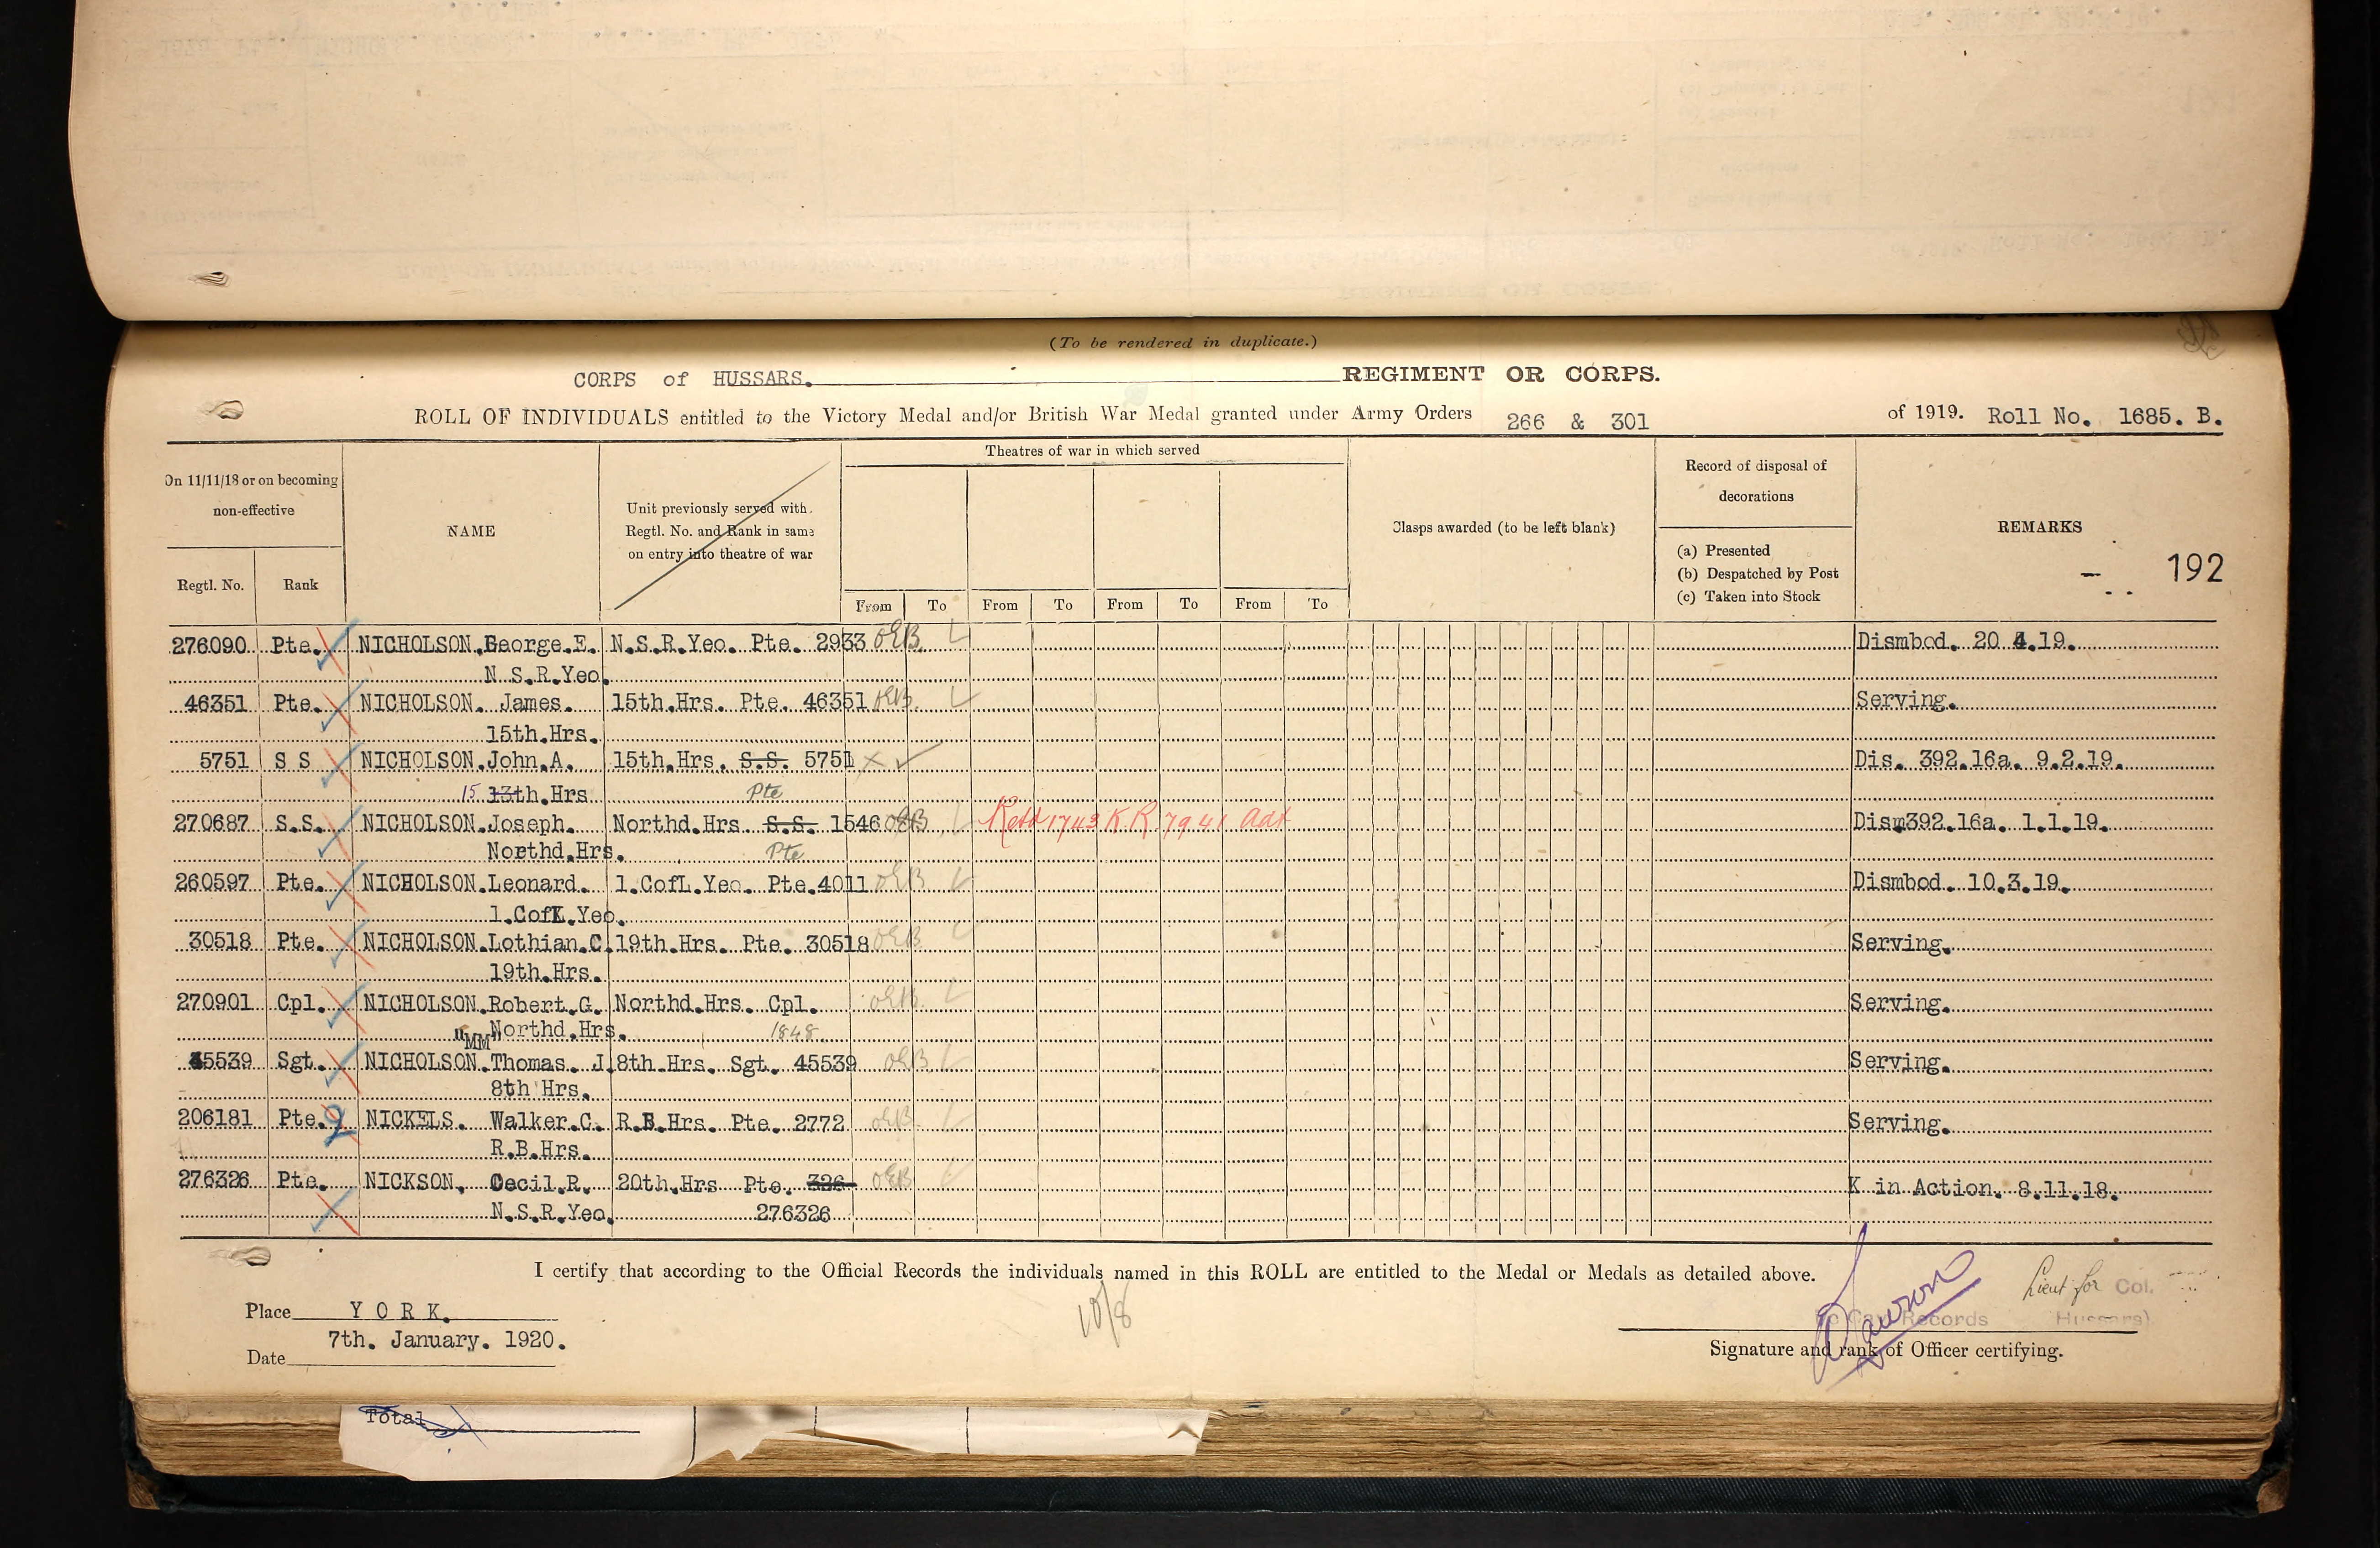 (To be rendered in duplicate.)
CORPS of HUSSARS. REGIMENT OR CORPS.
ROLL OF INDIVIDUALS entitled to the Victory Medal and/or British War Medal granted under Army Orders 266 & 301 of 1919. Roll No. 1685. B.
On 11/11/18 or on becoming non-effective
Regtl. No. Rank
NAME
Unit previously served with.
Regtl. No. and Rank in same
on entry into theatre of war
Theatres of war in which served
From To From To From To From To
Clasps awarded (to be left blank)
Record of disposal of
decorations
(a) Presented
(b) Despatched by Post
(c) Taken into Stock
REMARKS
192
276090 Pte. NICHOLSON. George.E. N.S.R.Yeo. Pte. 2933 Dismbod. 20 4.19.
N.S.R.Yeo.
46351 Pte. NICHOLSON. James. 15th.Hrs. Pte. 46351 Serving.
15th.Hrs.
5751 S S NICHOLSON. John.A. 15th.Hrs. S.S. 5751 Dis. 392.16a. 9.2.19.
15 13th.Hrs Pte
270687 S.S. NICHOLSON. Joseph. Northd.Hrs S.S. 1546 Retd 1743 KR 7941 Adt Dism392.16a. 1.1.19.
Northd.Hrs. Pte
260597 Pte. NICHOLSON. Leonard. 1.CofL.Yeo. Pte.4011 Dismbod. 10.3.19.
1.CofL.Yeo.
30518 Pte. NICHOLSON. Lothian.C. 19th.Hrs. Pte. 30518 Serving.
19th.Hrs.
270901 Cpl. NICHOLSON. Robert.G. Northd.Hrs. Cpl. Serving.
Northd.Hrs. 1848
"MM"
45539 Sgt. NICHOLSON. Thomas. J. 8th.Hrs. Sgt. 45539 Serving.
8th Hrs.
206181 Pte. 2 NICKELS. Walker.C. R.B.Hrs. Pte. 2772 Serving.
R.B.Hrs.
276326 Pte. NICKSON. Cecil.R. 20th.Hrs Pte. 326 K in Action. 8.11.18.
N.S.R.Yeo. 276326
I certify that according to the Official Records the individuals named in this ROLL are entitled to the Medal or Medals as detailed above.
10/8
Place YORK.
Date 7th. January. 1920.
Lieut for Col.
Records Hussars)
Signature and rank of Officer certifying.
Total